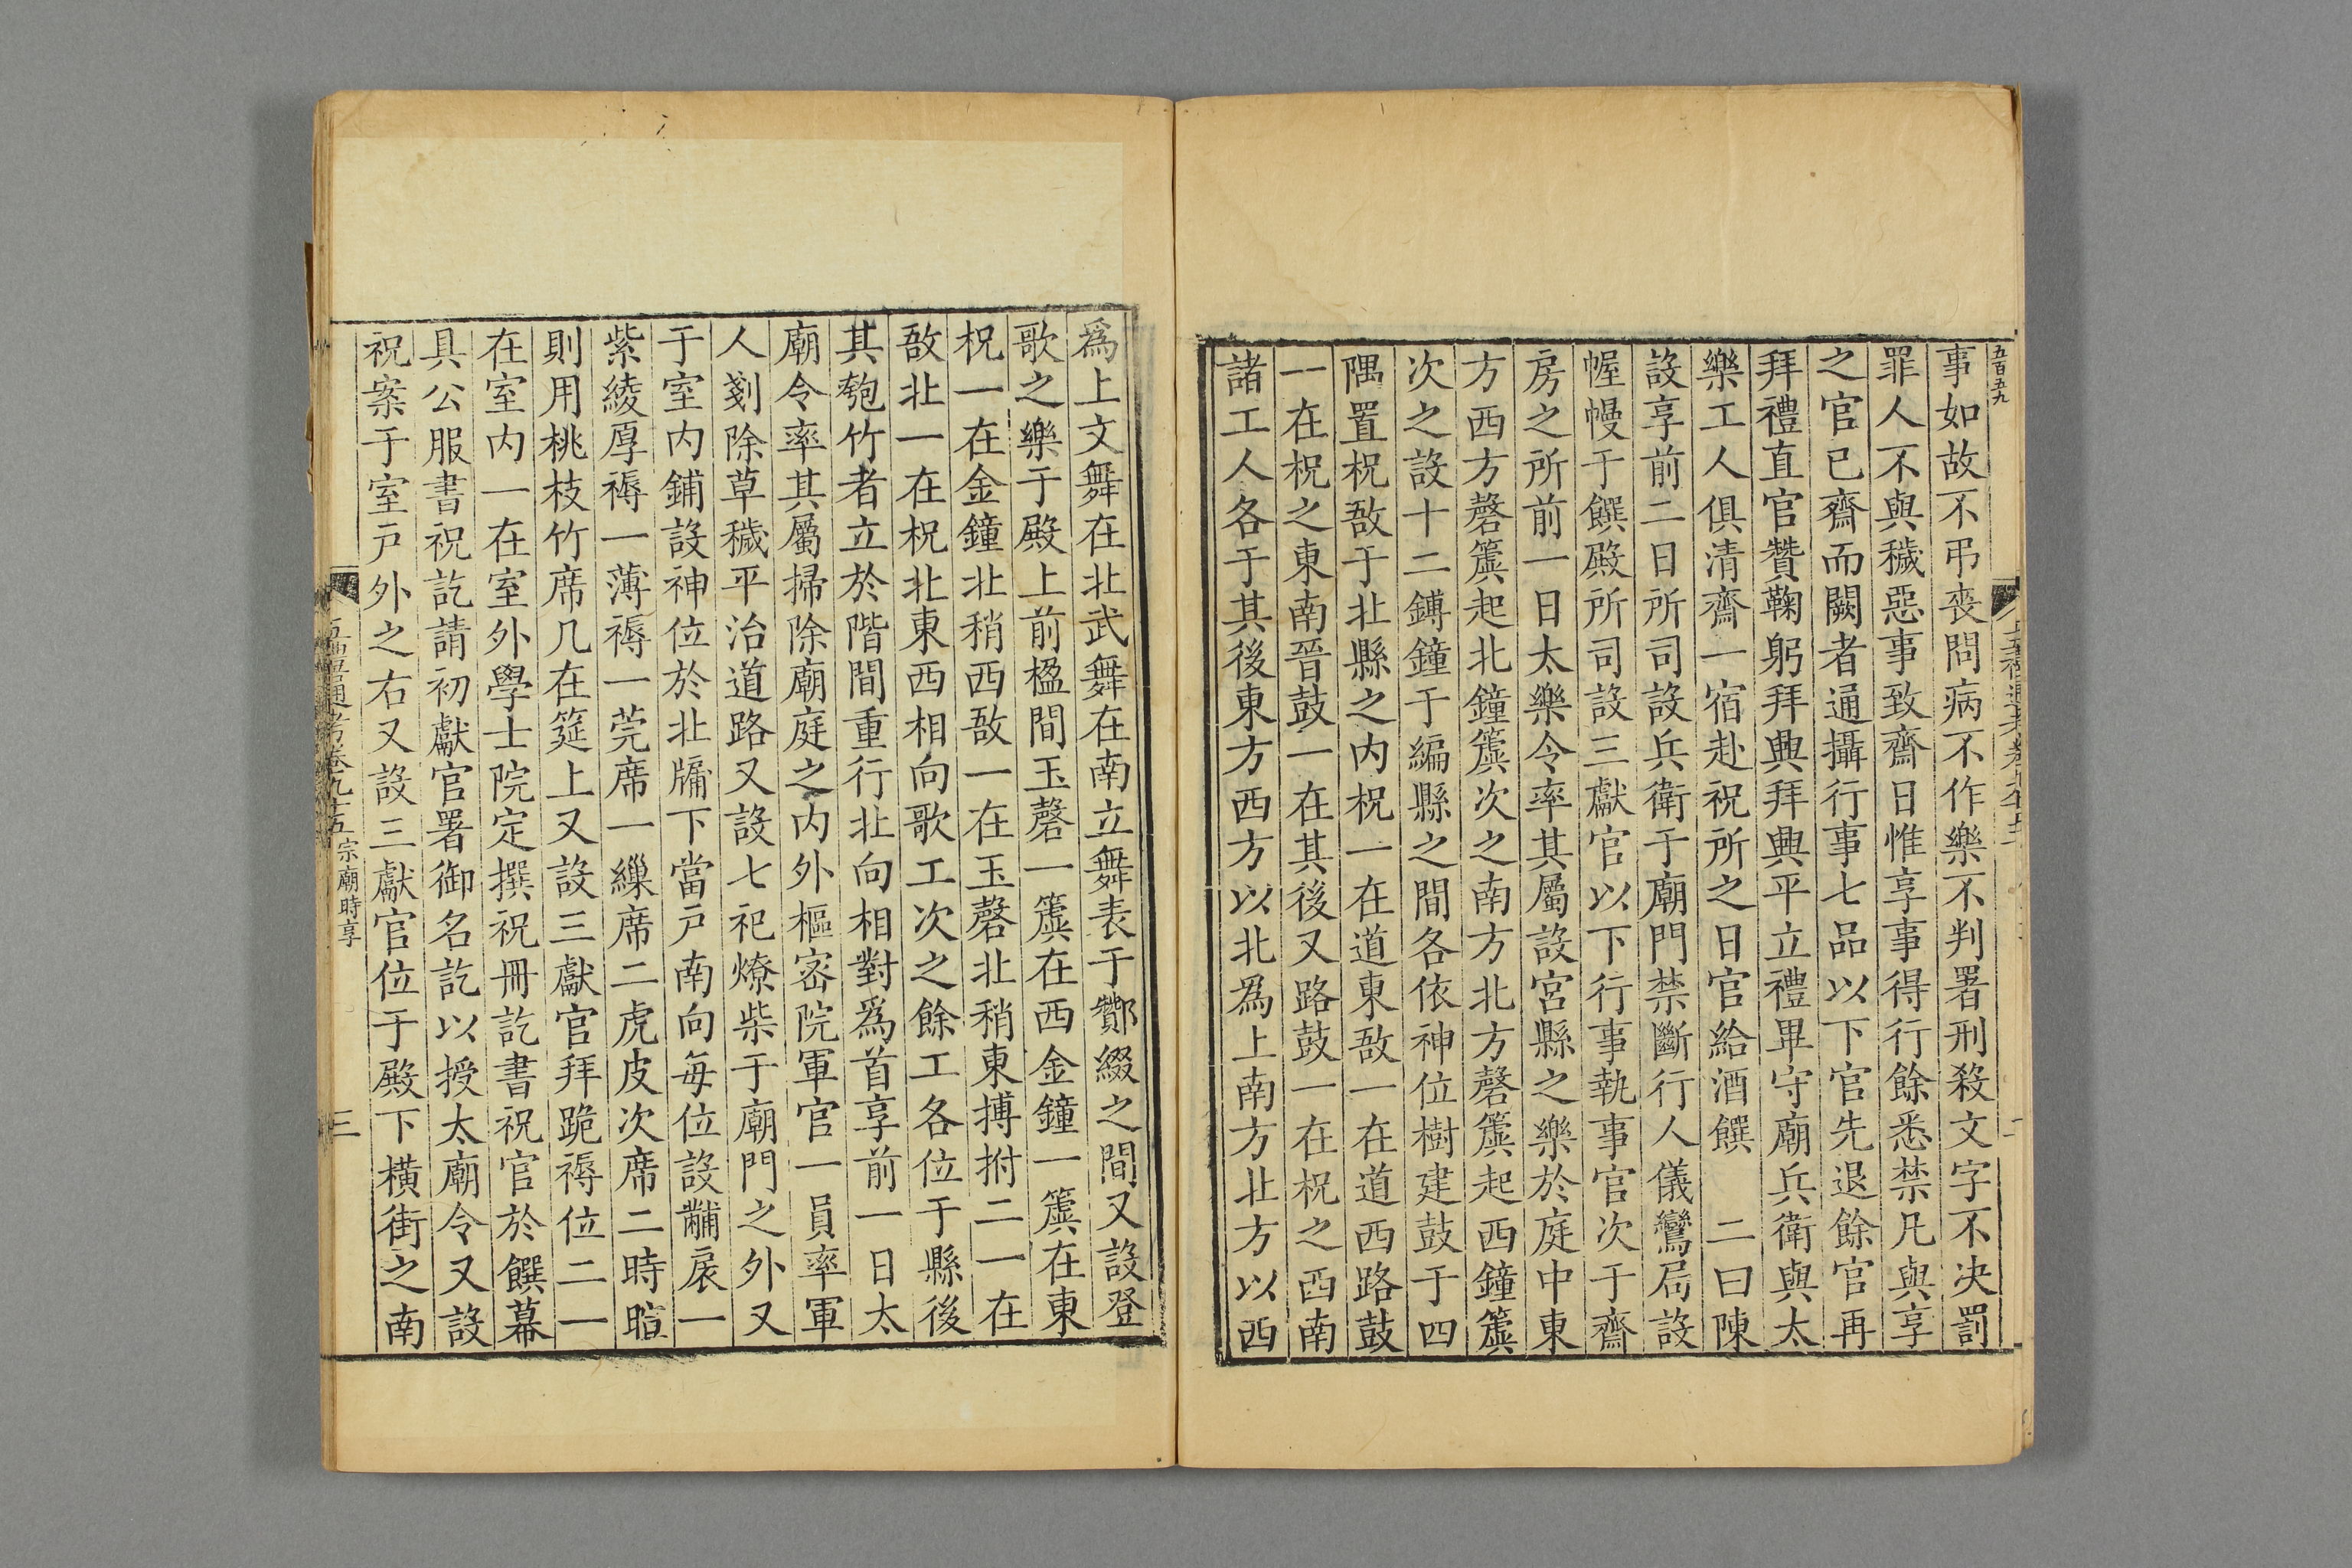 五百五九
事如故不弔喪問病不作樂不判署刑殺文字不决罰
罪人不與穢惡事致齋日惟享事得行餘悉禁凡與享
之官已齋而闕者通攝行事七品以下官先退餘官再
拜禮直官贊鞠躬拜興拜興平立禮畢守廟兵衛與太
樂工人俱清齋一宿赴祝所之日官給酒饌　二曰陳
設享前二日所司設兵衛于廟門禁斷行人儀鸞局設
幄幔于饌殿所司設三獻官以下行事執事官次于齋
房之所前一日太樂令率其屬設宮縣之樂於庭中東
方西方磬簴起北鐘簴次之南方北方磬簴起西鐘簴
次之設十二鎛鐘于編縣之間各依神位樹建鼓于四
隅置柷敔于北縣之内柷一在道東敔一在道西路鼓
一在柷之東南晉鼓一在其後又路鼓一在柷之西南
諸工人各于其後東方西方以北爲上南方北方以西
爲上文舞在北武舞在南立舞表于酇綴之間又設登
歌之樂于殿上前楹間玉磬一簴在西金鐘一簴在東
柷一在金鐘北稍西敔一在玉磬北稍東搏拊二一在
敔北一在柷北東西相向歌工次之餘工各位于縣後
其匏竹者立於階間重行北向相對爲首享前一日太
廟令率其屬掃除廟庭之内外樞密院軍官一員率軍
人剗除草穢平治道路又設七祀燎柴于廟門之外又
于室内鋪設神位於北牖下當户南向每位設黼扆一
紫綾厚褥一薄褥一莞席一繅席二虎皮次席二時暄
則用桃枝竹席几在筵上又設三獻官拜跪褥位二一
在室内一在室外學士院定撰祝冊訖書祝官於饌幕
具公服書祝訖請初獻官署御名訖以授太廟令又設
祝案于室户外之右又設三獻官位于殿下橫街之南
五禮通考卷九十五 宗廟時享 三